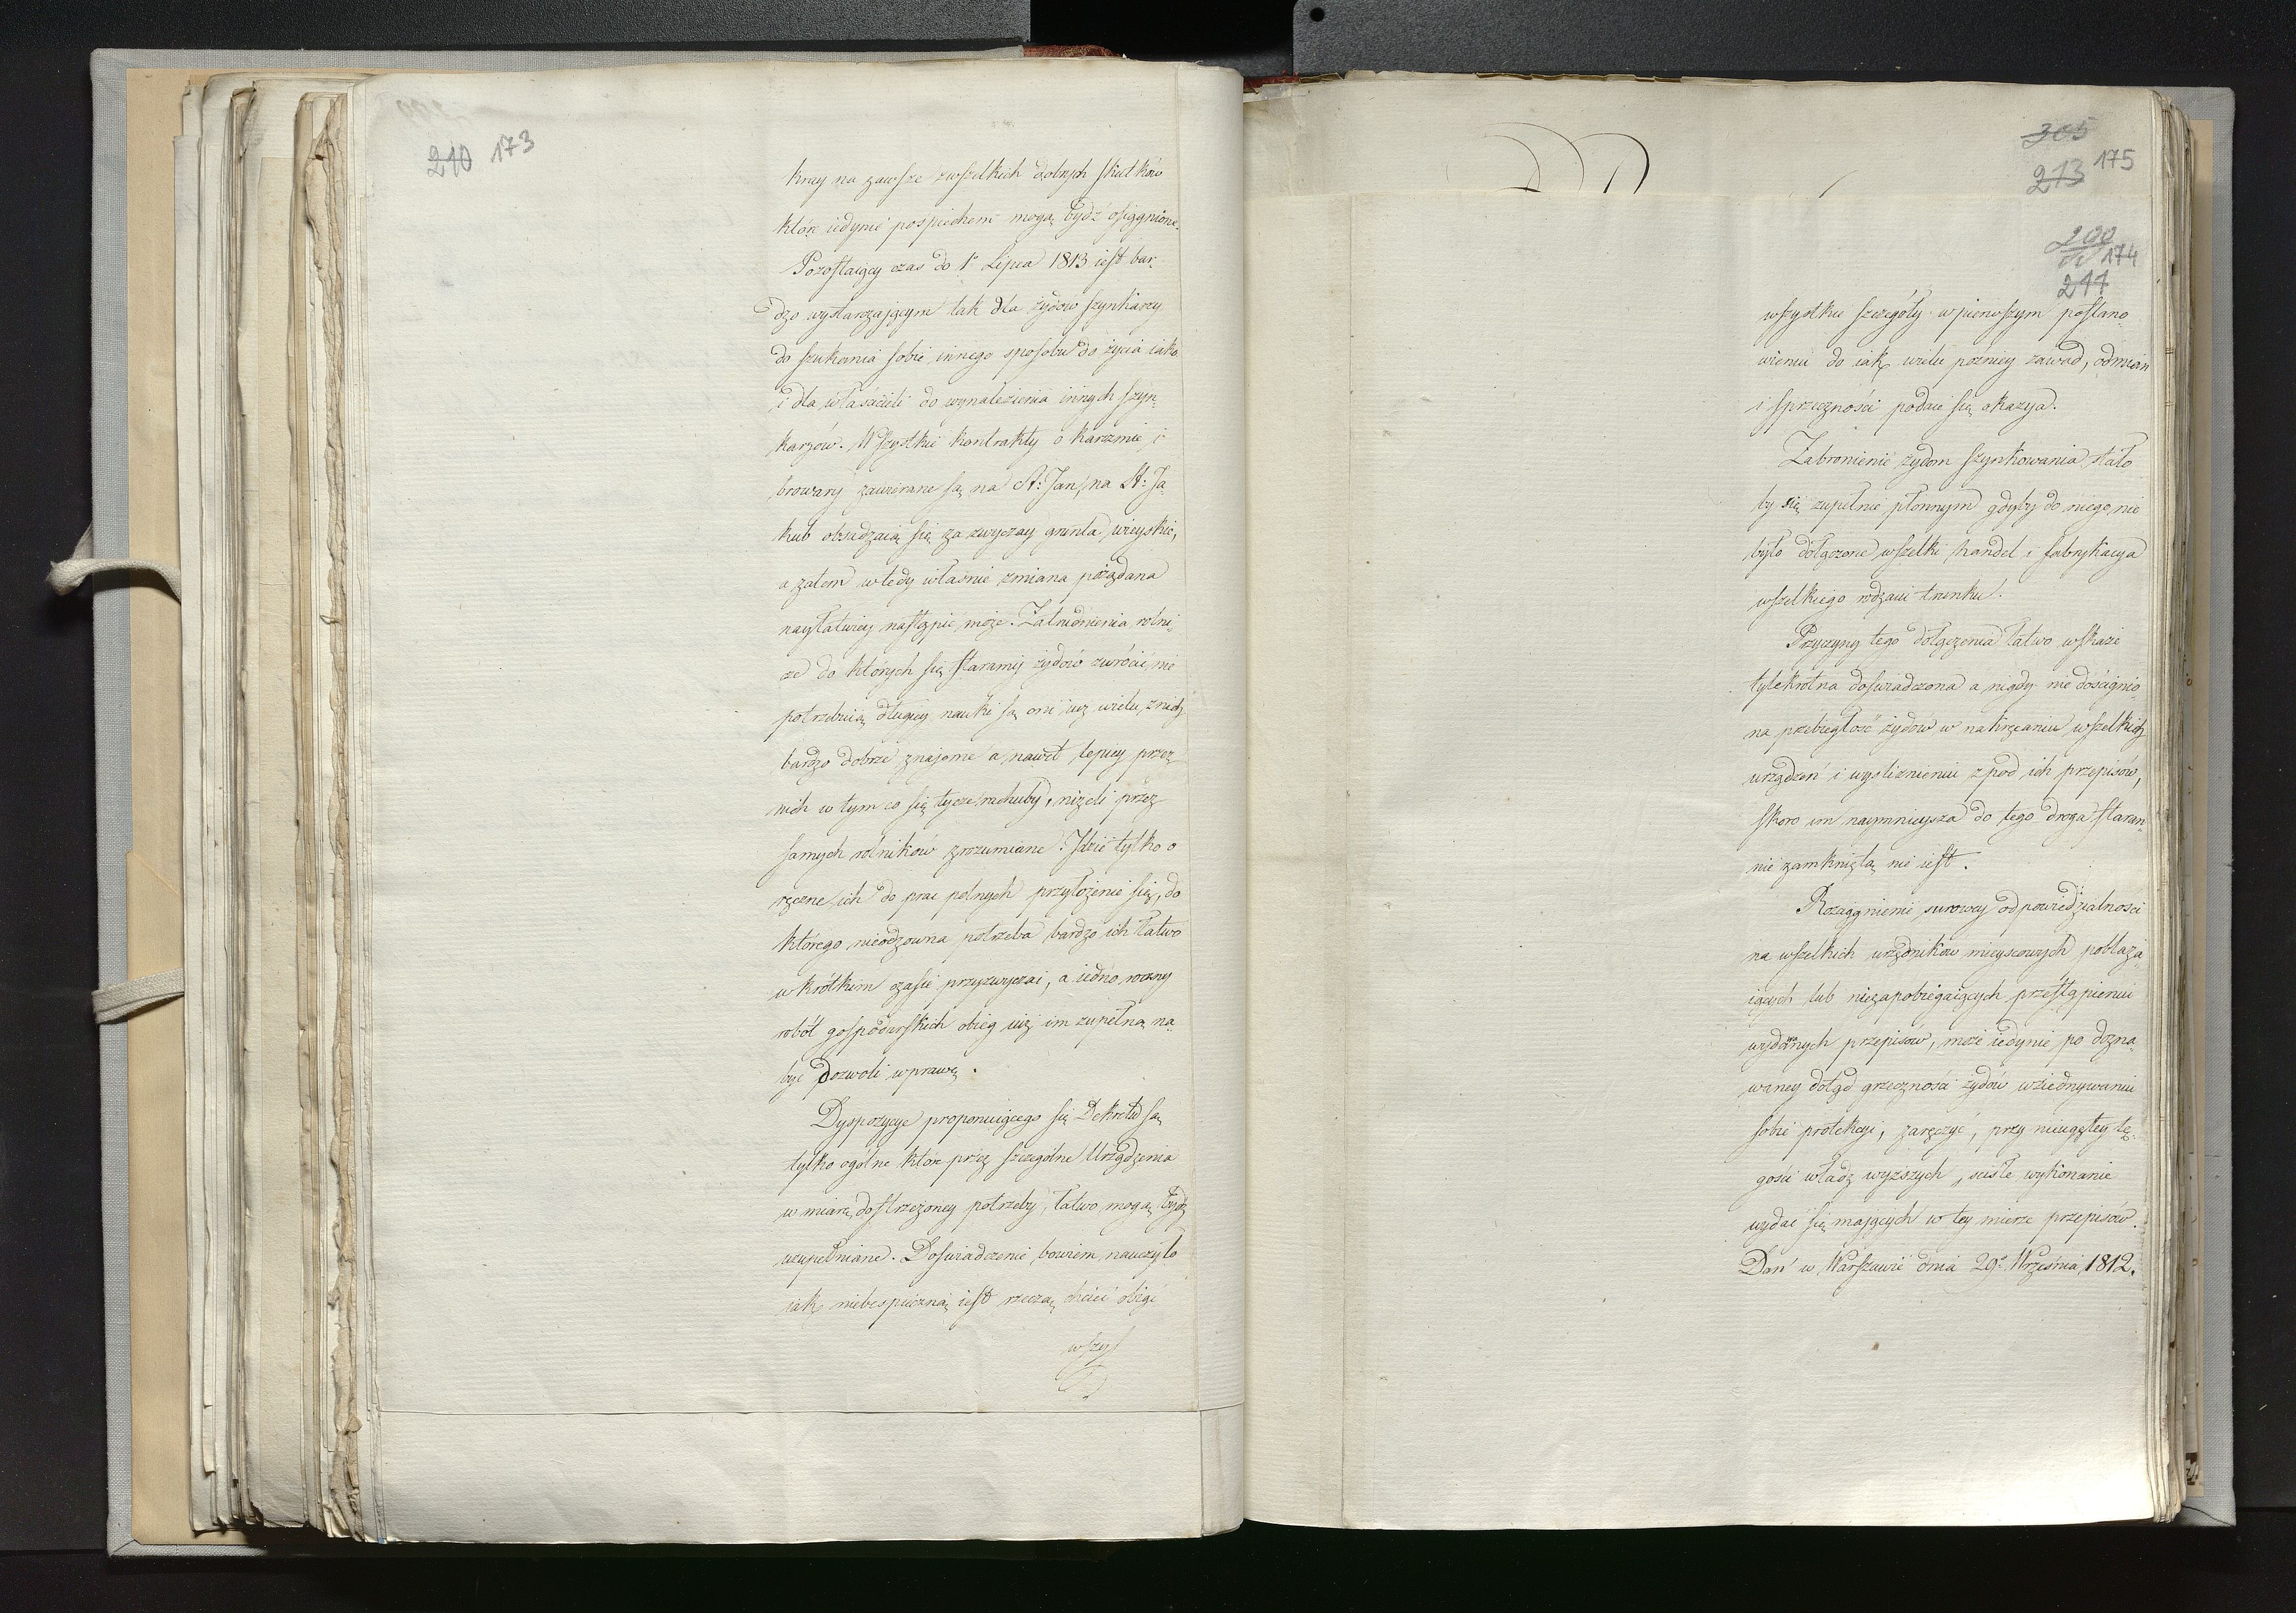 210 173
kray na zawsze zwszelkich dobrych skutków
które iedynie pospiechem mogą bydź osiągnione.
Pozostaiący czas do 1º Lipca 1813 iest bar-
dzo wystarczaiącym tak dla żydów szynkarzy
do szukania sobie innego sposobu do życia iako
i dla właścicieli do wynalezienia innych szyn-
karzów. Wszystkie kontrakty o karczmie i
browary zawierane są na St: Jan, na St: Ja-
kub obsadzaią się za zwyczay grunta wieyskie,
a zatem wtedy właśnie zmiana pożądana
nayłatwiey nastąpić może. Zatrudnienia rolni-
cze do których się staramy żydów zwrócić, nie
potrzebuią długiey nauki są oni iuż wielu z nich
bardzo dobrze znajome a nawet lepiey przez
nich w tym co się tycze rachuby, niżeli przez
samych rolników zrozumiane. Idzie tylko o
ręczne ich do prac polnych przyłożenie się, do
którego nieodzowna potrzeba bardzo ich łatwo
w krótkim czasie przyzwyczai, a iedno roczny
robót gospodarskich obieg iuż im zupełną na-
być dozwoli wprawę.
Dyspozycye proponuiącego się Dekretu są
tylko ogólne które przez szczególne Urządzenia
w miarę dostrzeżoney potrzeby, łatwo mogą bydź
uzupełniane. Doświadczenie bowiem nauczyło
iak niebespieczną iest rzeczą chcieć obiąć
wszys
305
213 175
200
174
211
wszystkie szczegóły w pierwszym postano-
wieniu do iak wielu pozniey zawad, odmian
i sprzeczności podaie się okazya.
Zabronienie żydom szynkowania stało
by się zupełnie płonnym gdyby do niego nie
było dołączone wszelki handel i fabrykacya
wszelkiego rodzaiu trunku.
Przyczyny tego dołączenia łatwo wskaże
tylekrotna doświadczona a nigdy nie doścignio-
na przebiegłość żydów w nakręcaniu wszelkich
urządzeń i wysliznieniu z pod ich przepisów,
skoro im naymnieysza do tego droga staran-
nie zamkniętą nie iest.
Rozciągnienie surowey odpowiedzialności
na wszelkich urzędników mieyscowych pobłaża-
iących lub niezapobiegaiących przestąpieniu
wydanych przepisów, może iedynie po dozna-
waney dotąd grzeczności żydów w ziednywaniu
sobie protekcyi, zaręczyć, przy nieugiętey tę-
gości władz wyższych, ścisłe wykonanie
wydać się maiących w tey mierze przepisów.
Dan w Warszawie dnia 29º Września 1812.